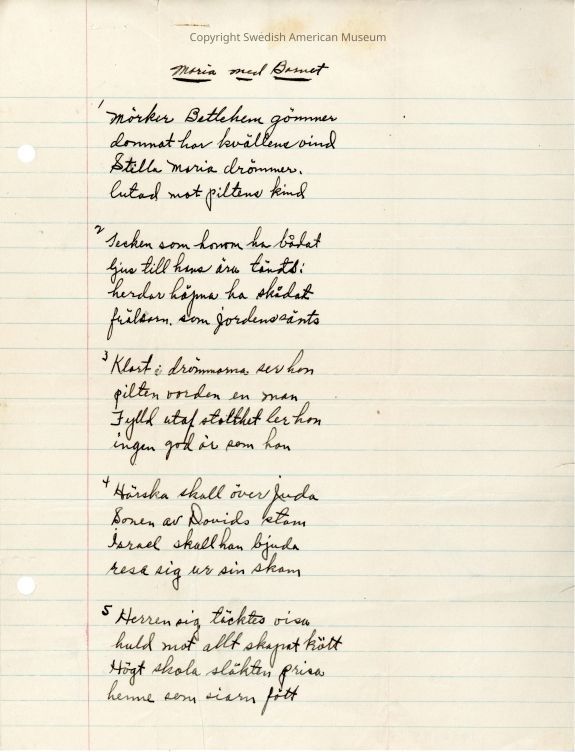 Copyright Swedish American Museum
Maria med Barnet
1 Mörker Betlehem gömmer
domnat har kvällens vind
Stilla Maria drömmer.
lutad mot piltens kind
2 Tecken som honom ha bådat
ljus till hans ära tänts:
herdar häpna ha skådat
frälsarn. som jorden sänts
3 Klart i drömmarna ser hon
pilten vorden en man
Fylld utaf stolthet ler hon
ingen god är som han
4 Härska skall över Juda
Sonen av Davids stam
Israel skall han bjuda
resa sig ur sin skam
5 Herren sig täcktes visa
huld mot allt skapat kött
Högt skola släkten prisa
henne som siarn fött